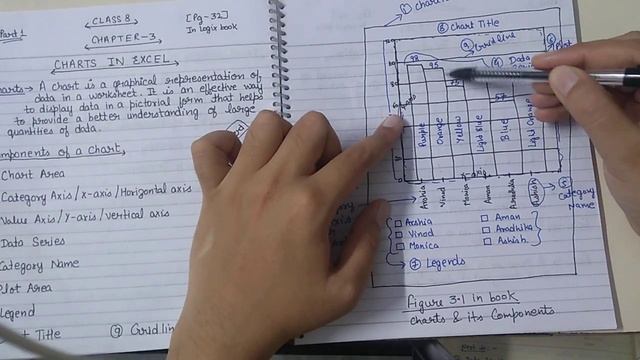 Part 1
CLASS 8
[Pg-32]
In Logix book
CHAPTER-3
CHARTS IN EXCEL
charts → A chart is a graphical representation of
data in a worksheet. It is an effective way
to display data in a pictorial form that helps
to provide a better understanding of large
quantities of data.
Components of a Chart
Chart Area
Category Axis/x-axis/Horizontal axis
Value Axis/Y-axis/vertical axis
Data Series
Category Name
Plot Area
Legend
Title
⑨ Gridlin
① Chart
⑧ Chart Title
⑨ Grid line
⑥ Plot
④ Data
98
95
Purple
Orange
Yellow
Light Blue
Blue
Light Orange
Arshia
Vinod
Monica
Aman
Aradhika
Ashish
⑤ Category
Name
Arshia
Vinod
Monica
Aman
Aradhika
Ashish.
⑦ Legends
Figure 3.1 in book
charts & its Components